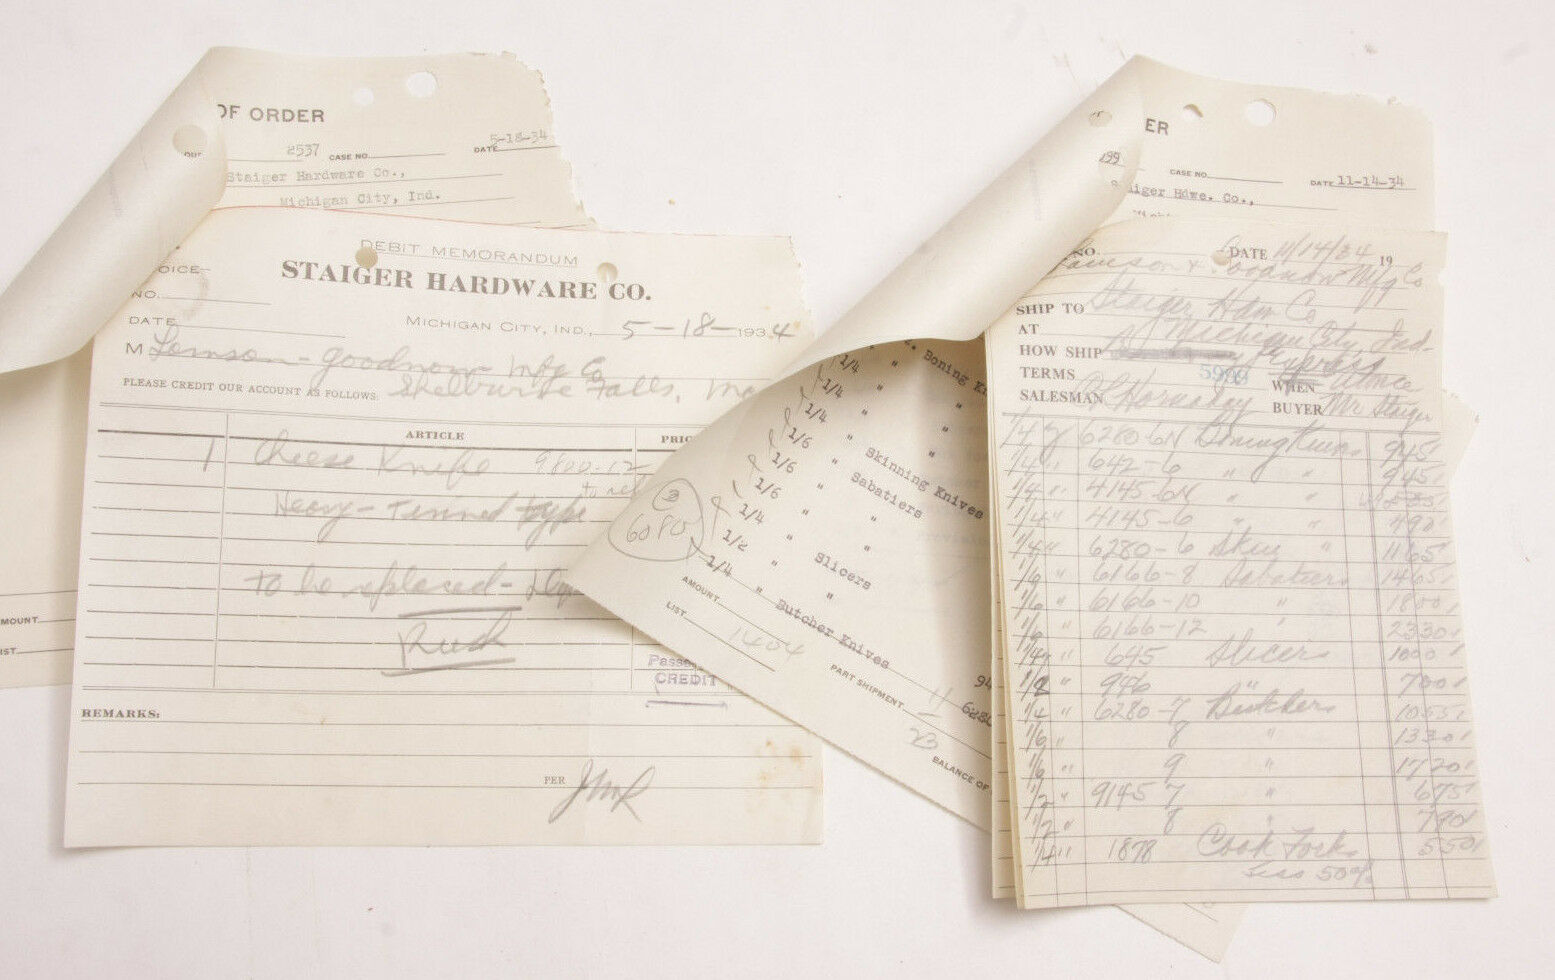 OF ORDER
2537 CASE NO.
DATE 5-18-34
Staiger Hardware Co.,
Michigan City, Ind.
MOUNT
IST
DEBIT MEMORANDUM
STAIGER HARDWARE CO.
OICE
NO.
DATE
MICHIGAN CITY, IND., 5-18-1934
M Lamson-Goodnow Mfg Co
Shelburne Falls, Ma
PLEASE CREDIT OUR ACCOUNT AS FOLLOWS:
ARTICLE PRIC
1 Cheese Knife 9800-12
Heavy-Tinned type
to be replaced-
Rush
Passe
CREDIT
REMARKS:
PER JMR
. Boning Kn
1/4 " "
1/4 " "
1/4 " "
1/4 " Skinning Knives
1/6 " Sabatiers
1/6 " "
1/6 " "
1/4 " Slicers
1/2 " "
1/4 " Butcher Knives
60PO
AMOUNT
LIST 1404
PART SHIPMENT 11
23
BALANCE OF
94
628
ER
299
CASE NO. DATE 11-14-34
aiger Hdwe. Co.,
NO. DATE 11/14/34 19
Lamson & Goodnow Mfg Co
SHIP TO Staiger Hdw Co
AT Michigan City, Ind-
HOW SHIP Express
TERMS 5999 WHEN Once
SALESMAN Hornaday BUYER Mr Staiger
1/4 " 6280-6N Boning Knives 945
1/4 " 642-6 " " 945
1/4 " 4145-6N " "
1/4 " 4145-6 " " 490
1/4 " 6280-6 Skin " 1165
1/6 " 6166-8 Sabatiers 1465
1/6 " 6166-10 " 1800
1/6 " 6166-12 " 2330
1/4 " 645 Slicers 1000
1/2 " 946 " 700
1/4 " 6280-7 Butchers 1055
1/6 " 8 " 1330
1/6 " 9 " 1720
1/2 " 9145 7 " 675
1/2 " 8 " 790
1/4 " 1878 Cook Forks 550
Less 50%